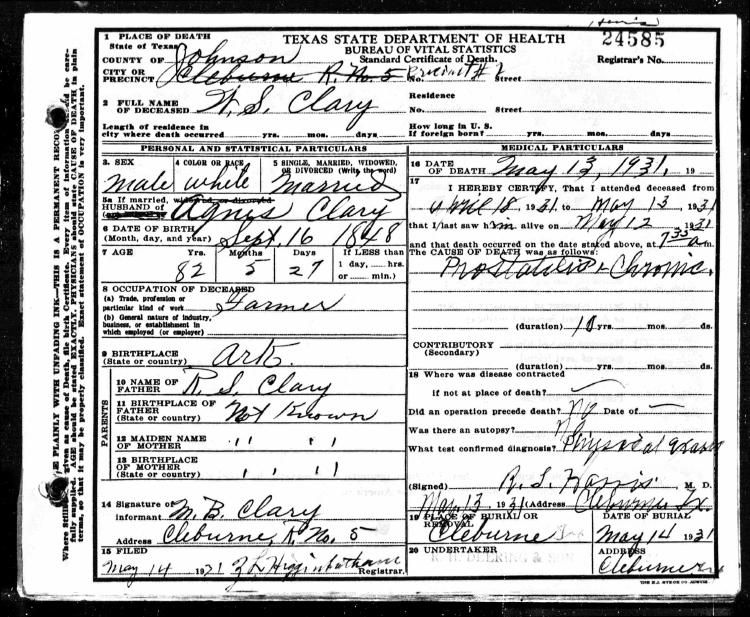 24585
1 PLACE OF DEATH
State of Texas
COUNTY OF Johnson
CITY OR PRECINCT Cleburne R. No. 5 Precinct #1 No. Street
TEXAS STATE DEPARTMENT OF HEALTH
BUREAU OF VITAL STATISTICS
Standard Certificate of Death.
Registrar's No.
2 FULL NAME OF DECEASED W. S. Clary
Residence
No. Street
Length of residence in city where death occurred yrs. mos. days.
How long in U. S. If foreign born? yrs. mos. days.
PERSONAL AND STATISTICAL PARTICULARS
3. SEX male
4 COLOR OR RACE white
5 SINGLE, MARRIED, WIDOWED, OR DIVORCED (Write the word) Married
5a If married, widowed or divorced
HUSBAND OF Agnes Clary
6 DATE OF BIRTH (Month, day, and year) Sept. 16 1848
7 AGE Yrs. Months Days If LESS than
82 5 27 1 day, hrs.
or min.)
8 OCCUPATION OF DECEASED
(a) Trade, profession or particular kind of work Farmer
(b) General nature of industry, business, or establishment in which employed (or employer)
9 BIRTHPLACE (State or country) Ark.
PARENTS
10 NAME OF FATHER R. S. Clary
11 BIRTHPLACE OF FATHER (State or country) Not Known
12 MAIDEN NAME OF MOTHER " " " "
13 BIRTHPLACE OF MOTHER (State or country) " " " "
14 Signature of informant M. B. Clary
Address Cleburne, R No. 5
15 FILED May 14 1931 Z L Higginbotham Registrar.
MEDICAL PARTICULARS
16 DATE OF DEATH May 13, 1931, 19
17 I HEREBY CERTIFY, That I attended deceased from
April 18, 1931 to May 13 1931
that I last saw him alive on May 12 1931
and that death occurred on the date stated above, at 7 33 a.m.
The CAUSE OF DEATH was as follows:
Prostatitis Chronic
(duration) 10 yrs. mos. ds.
CONTRIBUTORY (Secondary)
(duration) yrs. mos. ds.
18 Where was disease contracted
if not at place of death?
Did an operation precede death? No Date of —
Was there an autopsy? No
What test confirmed diagnosis? Physical Exam
(Signed) R. L. Harris M. D.
May 13, 1931 (Address Cleburne Tx.
19 PLACE OF BURIAL OR REMOVAL Cleburne
DATE OF BURIAL May 14 1931
20 UNDERTAKER
R. H. DEERING & SON
ADDRESS Cleburne
THE E.L. STECK CO. AUSTIN